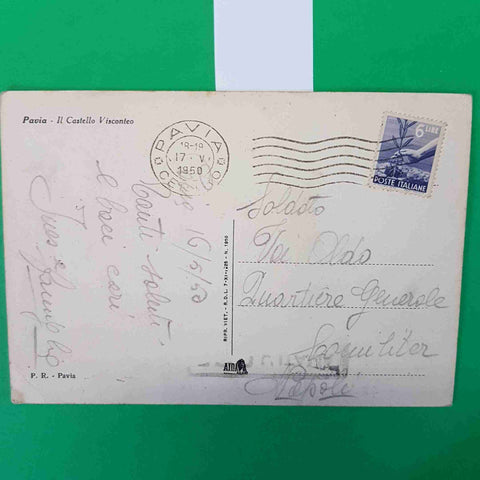 Pavia - Il Castello Visconteo
PAVIA
18-19
17 · V
1950
6 LIRE
POSTE ITALIANE
16/5/50
Tanti saluti
e baci cari
Soldato
Vai Aldo
Quartiere Generale
Napoli
RIPR. VIET. - R.D.L. 7-XI-925 - N. 1950
P. R. - Pavia